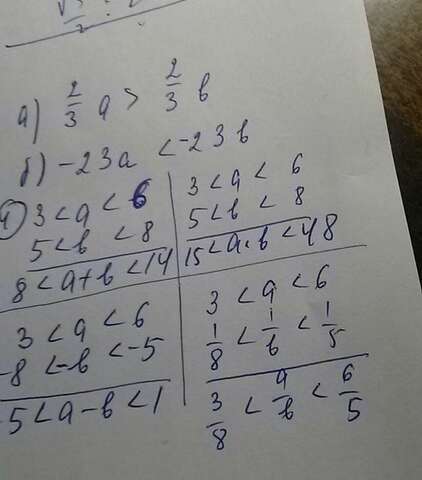 а) 2/3 a > 2/3 b
б) -23a < -23b
4) 3 < a < 6
5 < b < 8
8 < a+b < 14
3 < a < 6
5 < b < 8
15 < a·b < 48
3 < a < 6
-8 < -b < -5
-5 < a-b < 1
3 < a < 6
1/8 < 1/b < 1/5
3/8 < a/b < 6/5